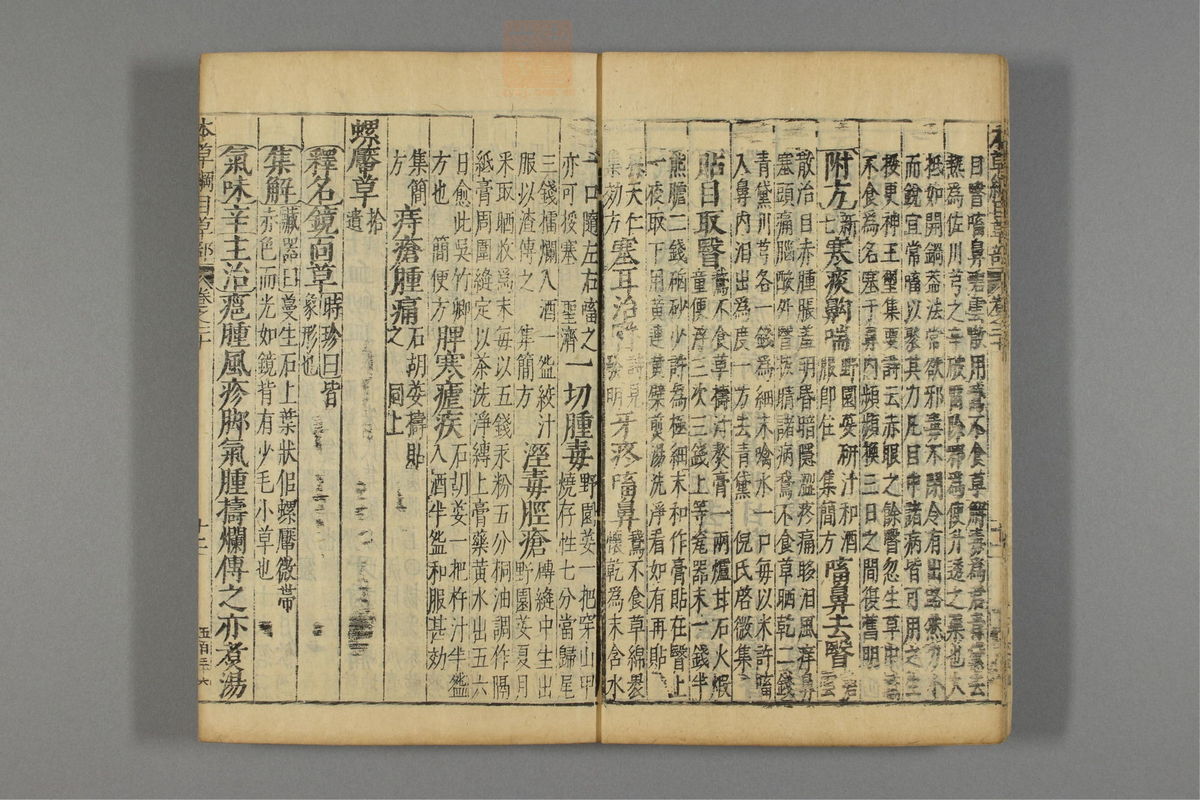 目瞖㗜鼻碧雲散用鵝不食草解毒為君青黛去
熱為佐川芎之辛破畱除邪為使升透之藥也大
抵如開鍋蓋法常欲邪毒不閉令有出路然力小
而銳宜常㗜以聚其力凡目中諸病皆可用之生
挼更神王璽集要詩云赤眼之餘瞖忽生草中鵝
不食為名塞于鼻內頻頻換三日之間復舊明
附方新七寒痰齁喘野園荽研汁和酒服即住集簡方㗜鼻去瞖碧雲
散治目赤腫脹羞明昏暗隱澀疼痛眵泪風癢鼻
塞頭痛腦酸外瞖扳睛諸病鵞不食草晒乾二錢
青黛川芎各一錢為細末噙水一口每以米許㗜
入鼻內泪出為度一方去青黛倪氏啓微集
貼目取瞖鵞不食草擣汁熬膏一兩爐甘石火煆
童便淬三次三錢上等瓷器末一錢半
熊膽二錢硇砂少許為極細末和作膏貼在瞖上
一夜取下用黃連黃蘗煎湯洗淨看如有再貼
孫天仁集効方塞耳治瞖詩見發明牙疼㗜鼻鵞不食草綿裹懷乾為末含水
一口隨左右㗜之亦可挼塞聖濟一切腫毒野園荽一把穿山甲燒存性七分當歸尾
三錢擂爛入酒一盌絞汁服以渣傅之集簡方濕毒脛瘡磚縫中生出野園荽夏月
采取晒收為末每以五錢汞粉五分桐油調作隔
紙膏周圍縫定以茶洗淨縛上膏藥黃水出五六
日愈此吳竹卿方也簡便方脾寒瘧疾石胡荽一把杵汁半盌入酒半盌和服甚効
集簡方痔瘡腫痛石胡荽擣貼之同上
螺厴草拾遺
釋名鏡面草時珍曰皆象形也
集解臟器曰蔓生石上葉狀似螺厴微帶赤色而光如鏡背有少毛小草也
氣味辛主治癰腫風疹脚氣腫擣爛傅之亦煮湯
本草綱目草部 卷之二十